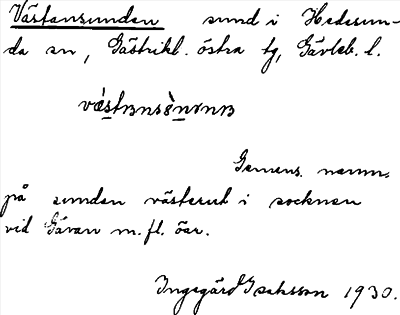 Västansunden sund i Hedesun-
da sn, Gästrikl. östra tg, Gävleb. l.
Gemens. namn
på sunden västerut i socknen
vid Gåran m. fl. öar.
Ingegärd Isaksson 1930.